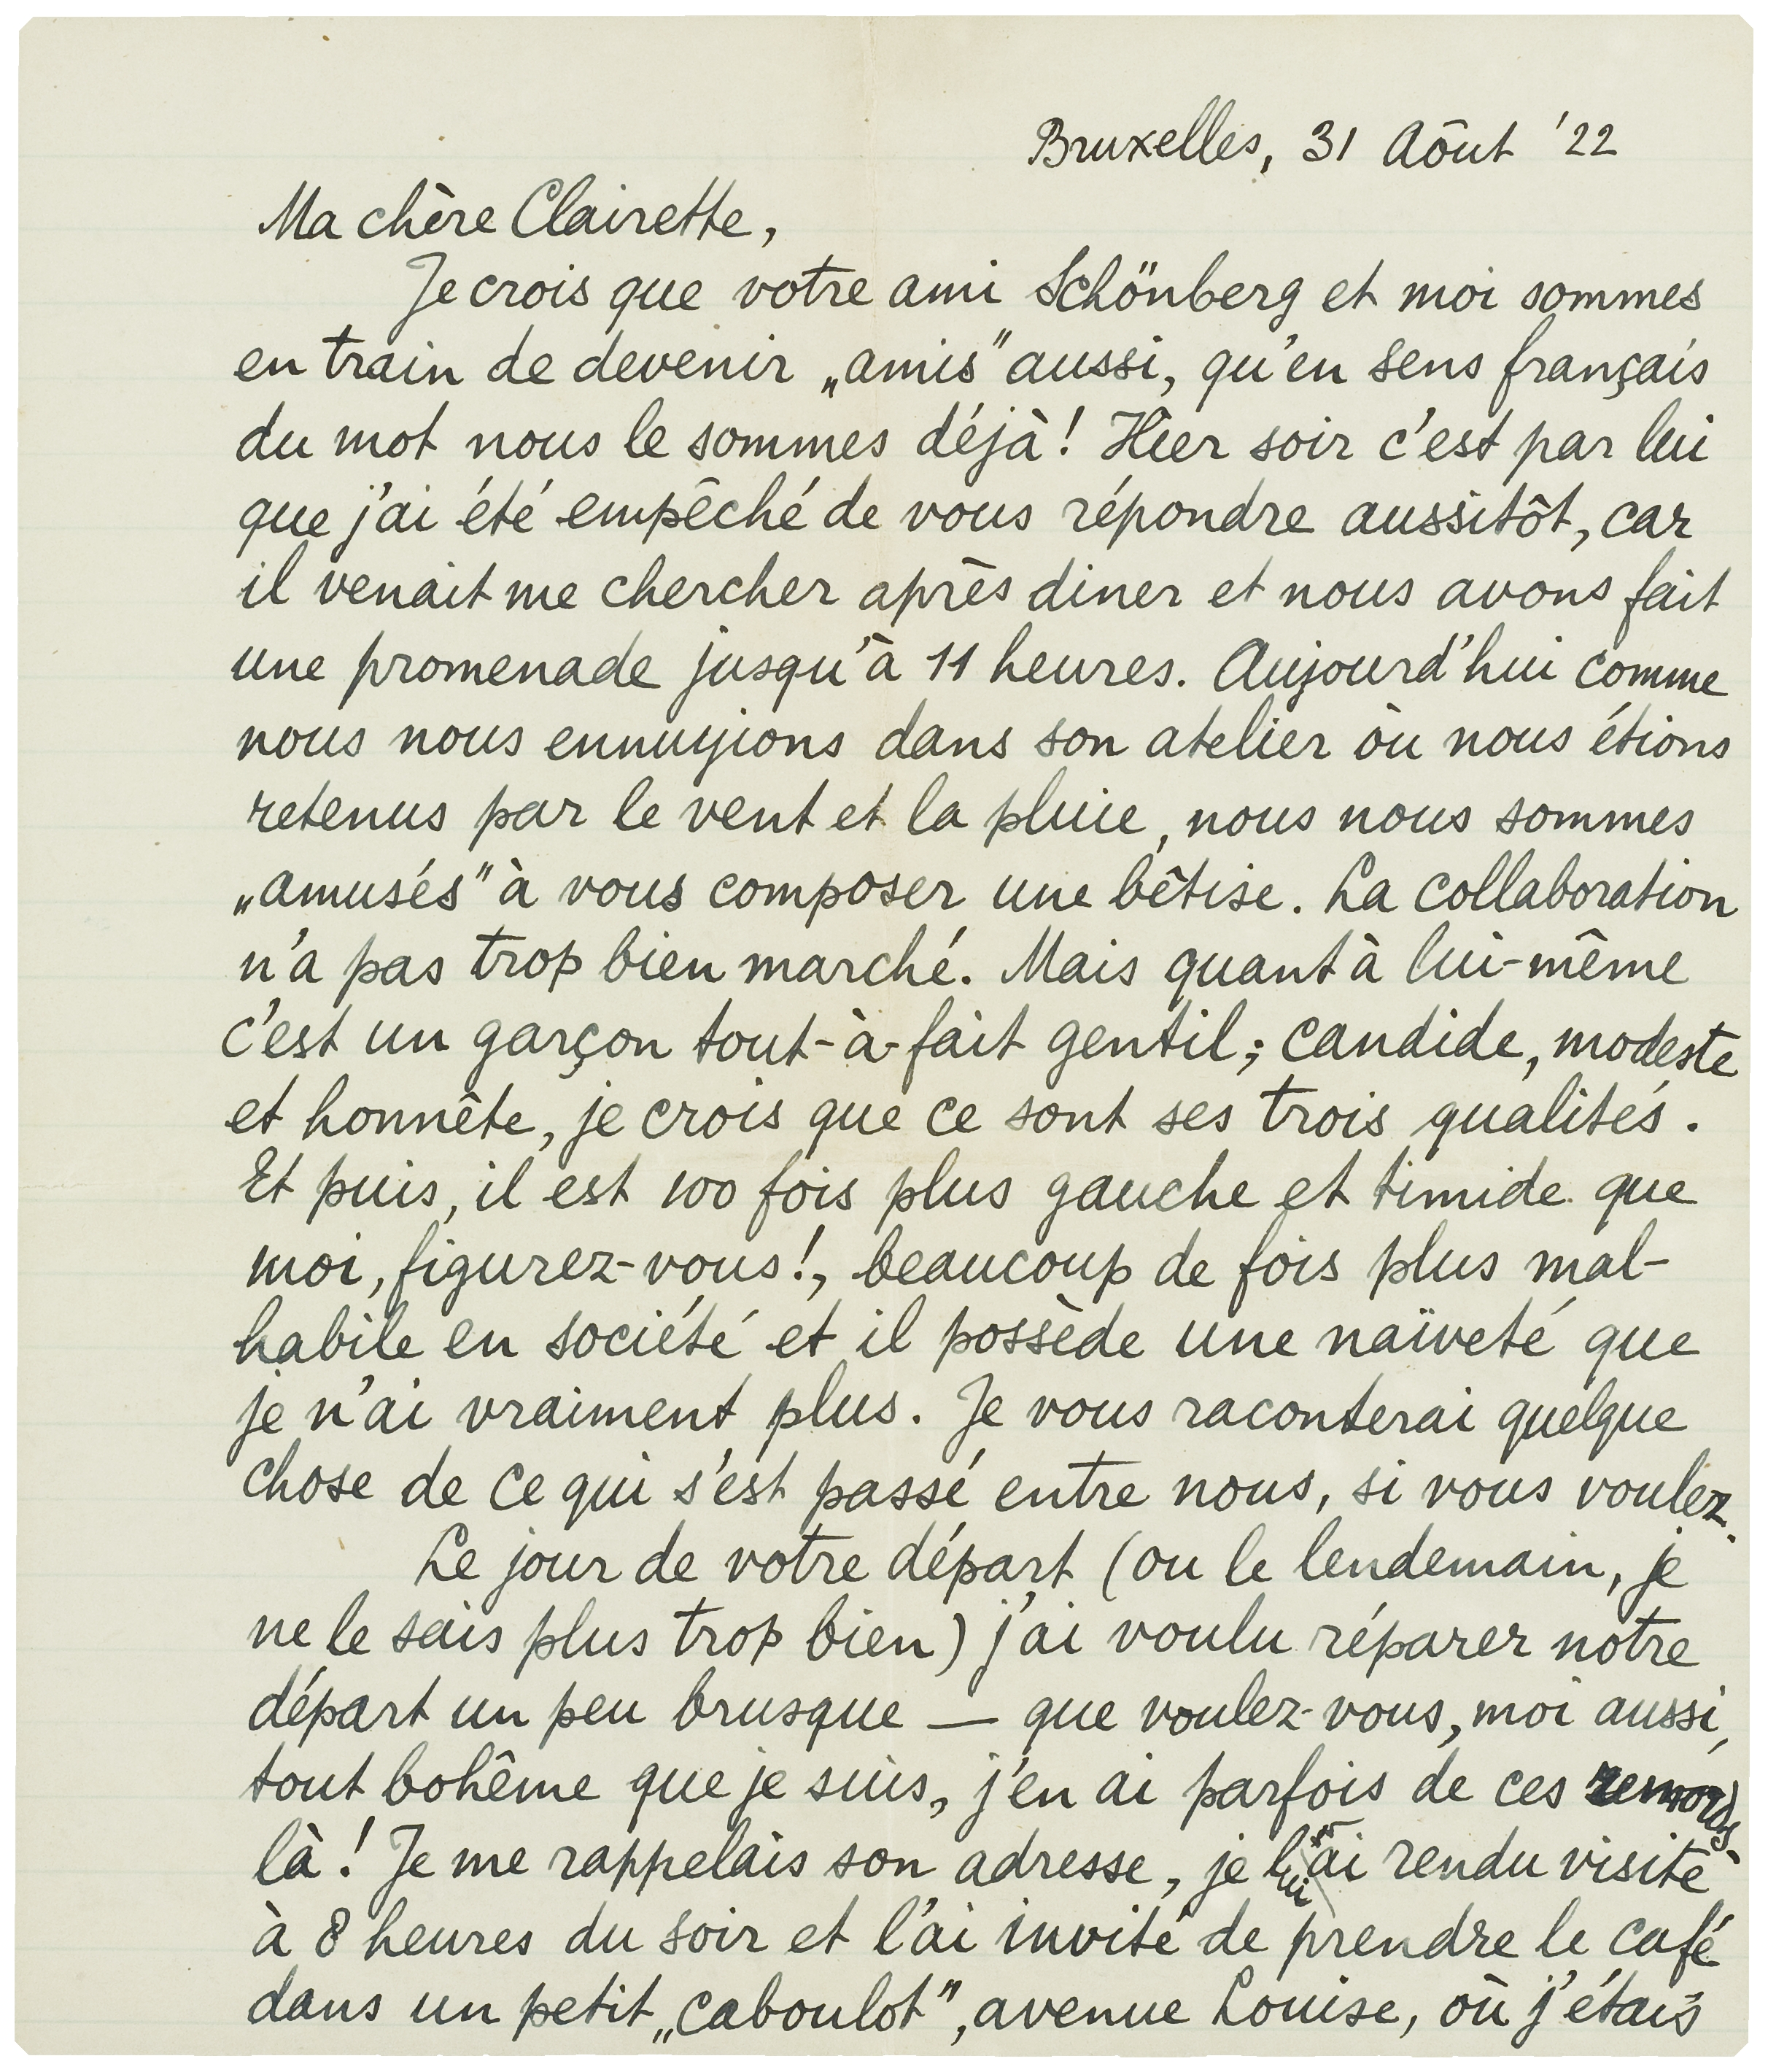 Bruxelles, 31 Aôut '22
Ma chère Clairette,
Je crois que votre ami Schönberg et moi sommes
en train de devenir „amis" aussi, qu'en sens français
du mot nous le sommes déjà! Hier soir c'est par lui
que j'ai été empêché de vous répondre aussitôt, car
il venait me chercher après diner et nous avons fait
une promenade jusqu'à 11 heures. Aujourd'hui comme
nous nous ennuyions dans son atelier où nous étions
retenus par le vent et la pluie, nous nous sommes
„amusés" à vous composer une bêtise. La collaboration
n'a pas trop bien marché. Mais quant à lui-même
c'est un garçon tout-à-fait gentil; candide, modeste
et honnête, je crois que ce sont ses trois qualités.
Et puis, il est 100 fois plus gauche et timide que
moi, figurez-vous!, beaucoup de fois plus mal-
habile en société et il possède une naïveté que
je n'ai vraiment plus. Je vous raconterai quelque
chose de ce qui s'est passé entre nous, si vous voulez.
Le jour de votre départ (ou le lendemain, je
ne le sais plus trop bien) j'ai voulu réparer notre
départ un peu brusque — que voulez-vous, moi aussi,
tout bohême que je suis, j'en ai parfois de ces remords-
là! Je me rappelais son adresse, je lui ai rendu visite
à 8 heures du soir et l'ai invité de prendre le café
dans un petit „caboulot", avenue Louise, où j'étais